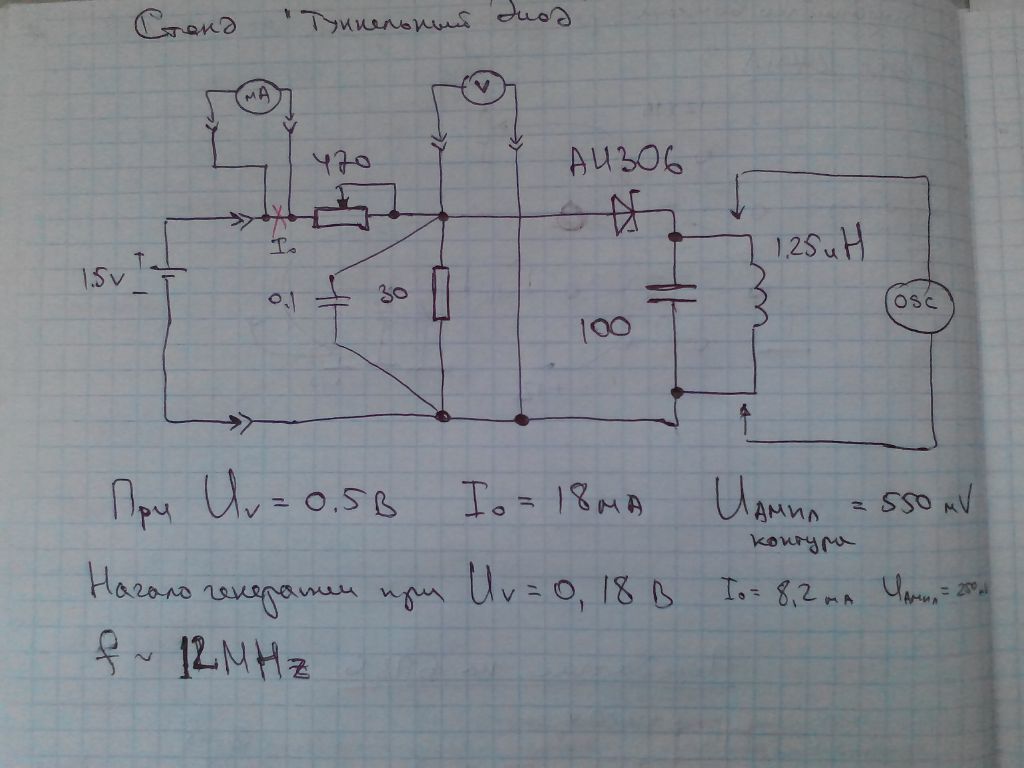 Стенд "Туннельный диод
мА
V
470
АИ306
I₀
1.5v
+
−
0.1
30
100
1,25 uH
OSC
При Uᵥ = 0.5 В I₀ = 18 мА Uампл = 550 mV
контура
Начало генерации при Uᵥ = 0,18 В I₀ = 8,2 мА Uампл = 250
f ~ 12 MHz